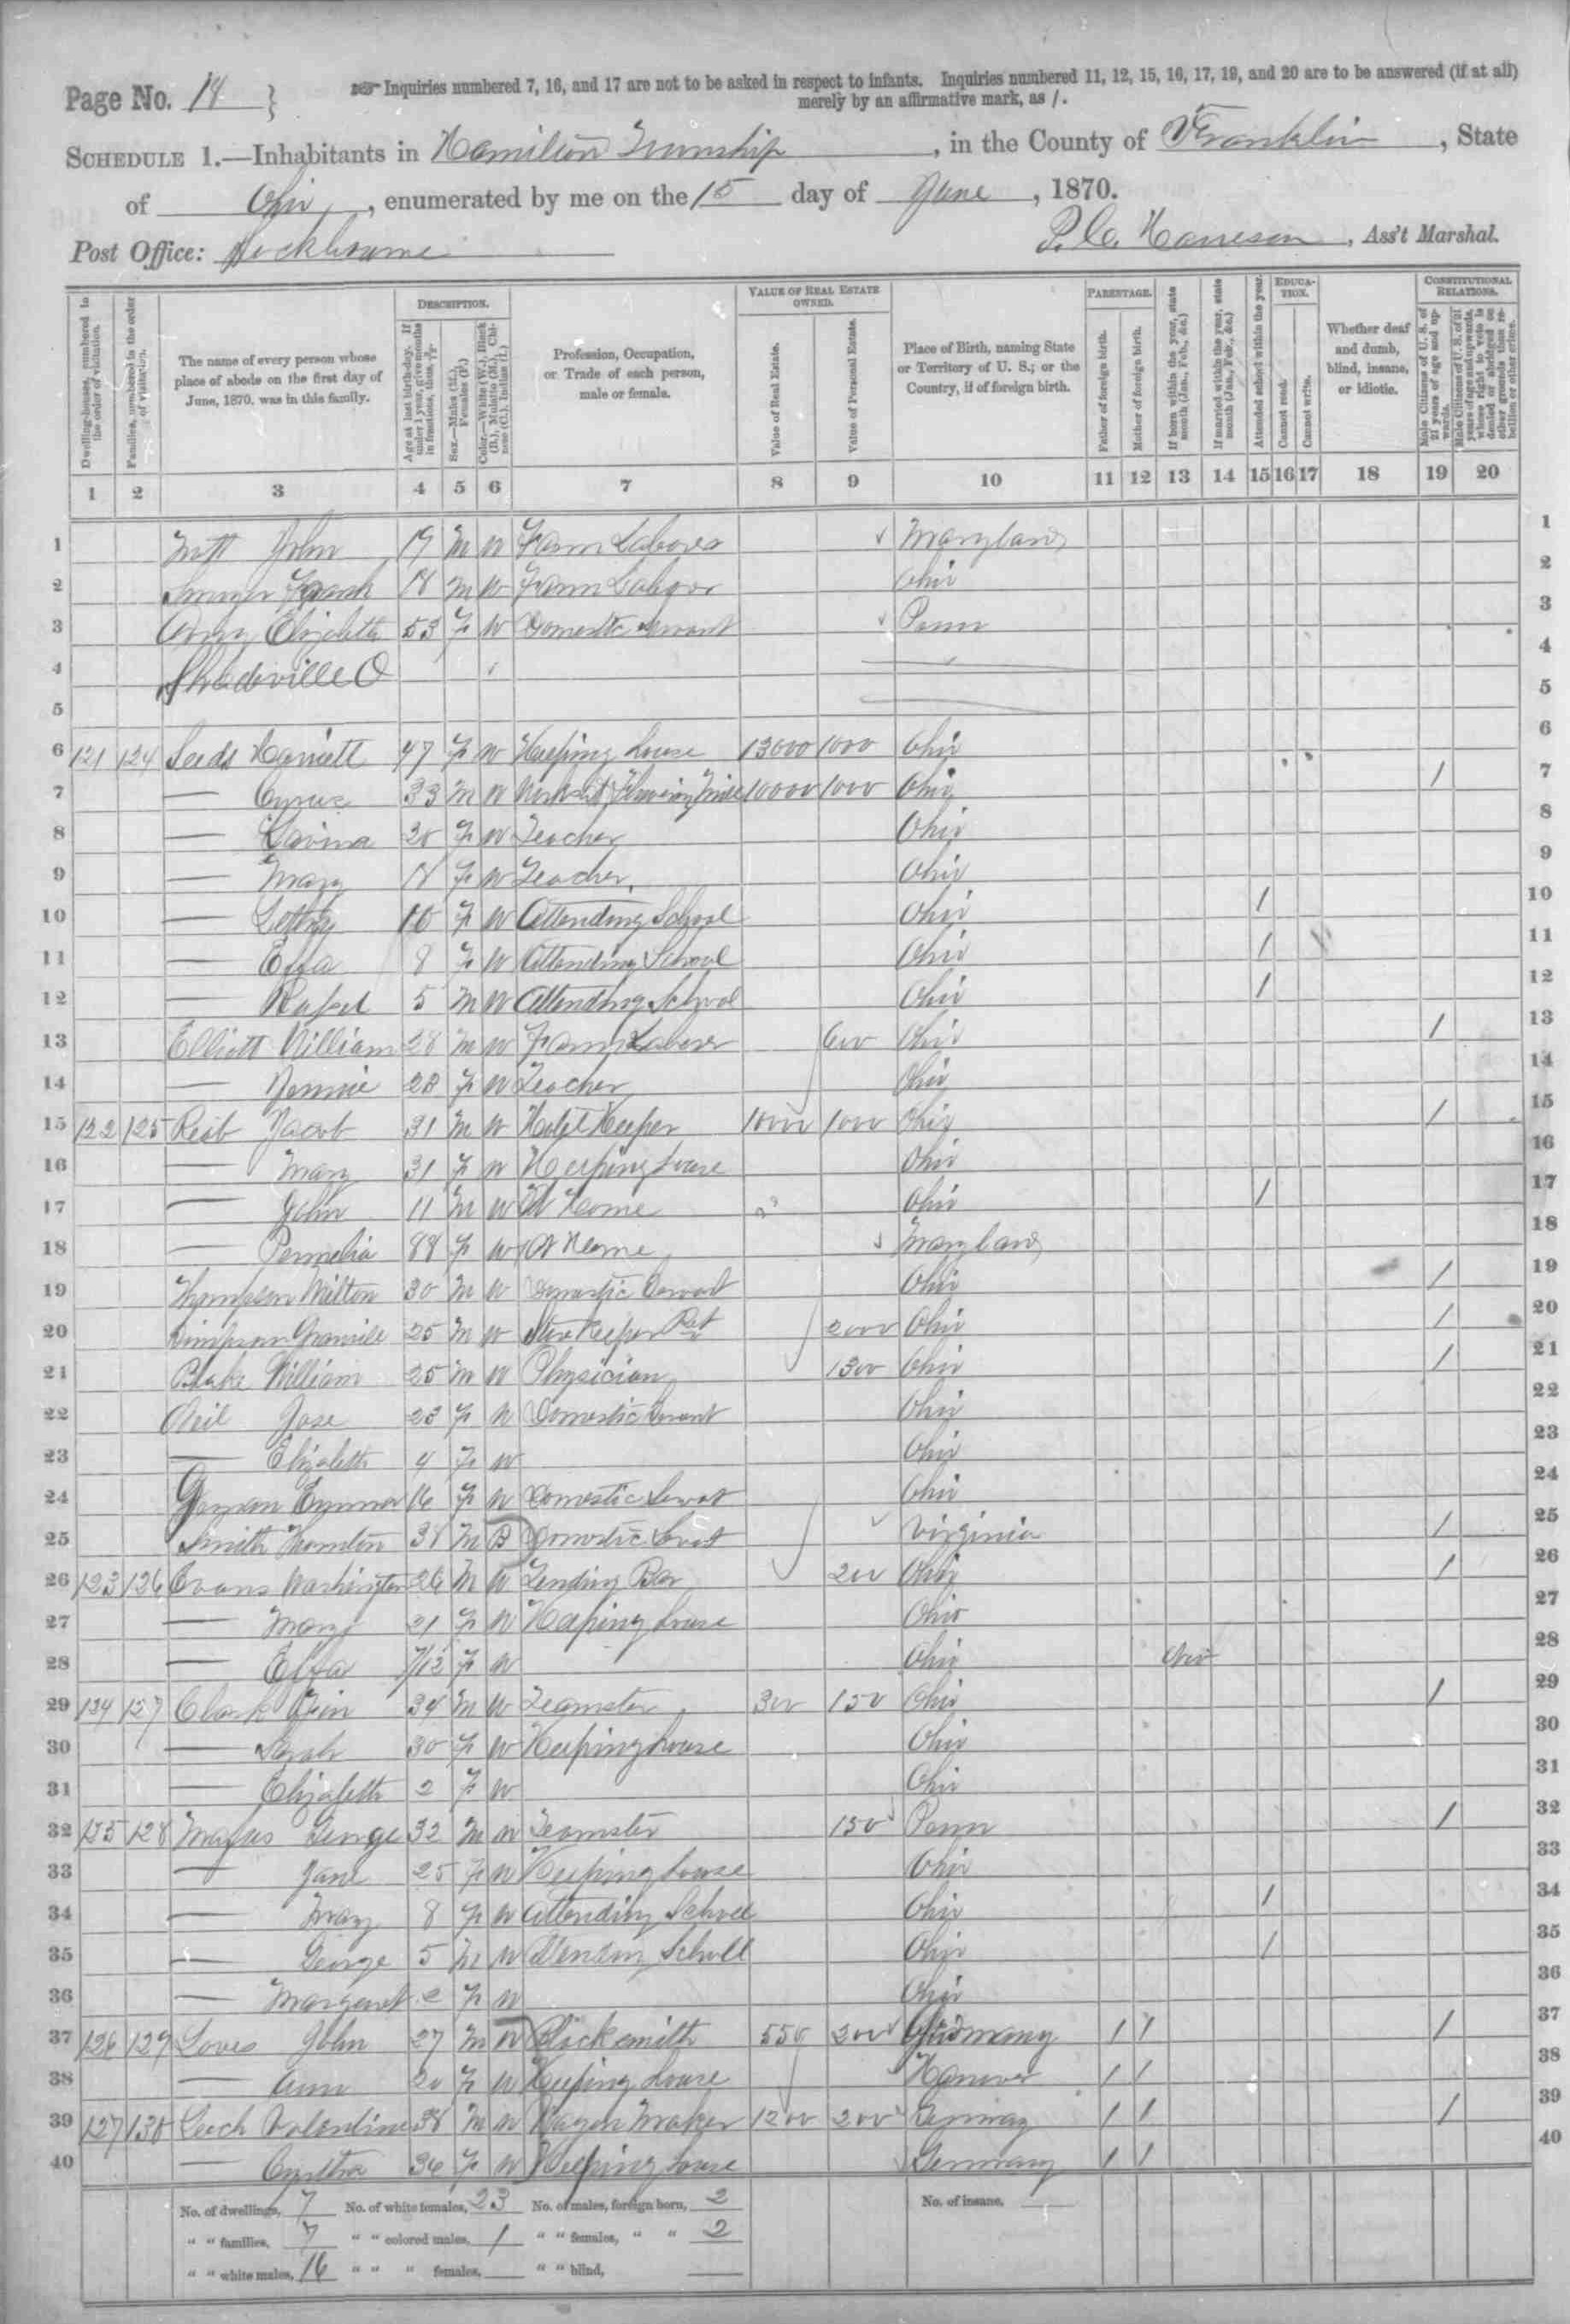 Page No. 18 } Inquiries numbered 7, 16, and 17 are not to be asked in respect to infants. Inquiries numbered 11, 12, 15, 16, 17, 19, and 20 are to be answered (if at all)
merely by an affirmative mark, as /.
SCHEDULE 1.—Inhabitants in Hamilton Township, in the County of Franklin, State
of Ohio, enumerated by me on the 15 day of June, 1870.
Post Office: Lockbourne P. C. Harrison, Ass't Marshal.
Dwelling-houses, numbered in the order of visitation.
Families, numbered in the order of visitation.
The name of every person whose place of abode on the first day of June, 1870, was in this family.
DESCRIPTION.
Age at last birth-day. If under 1 year, give months in fractions, thus, 3/12.
Sex.—Males (M.), Females (F.)
Color.—White (W.), Black (B.), Mulatto (M.), Chinese (C.), Indian (I.)
Profession, Occupation, or Trade of each person, male or female.
VALUE OF REAL ESTATE OWNED.
Value of Real Estate.
Value of Personal Estate.
Place of Birth, naming State or Territory of U. S.; or the Country, if of foreign birth.
PARENTAGE.
Father of foreign birth.
Mother of foreign birth.
If born within the year, state month (Jan., Feb., &c.)
If married within the year, state month (Jan., Feb., &c.)
Attended school within the year.
EDUCATION.
Cannot read.
Cannot write.
Whether deaf and dumb, blind, insane, or idiotic.
CONSTITUTIONAL RELATIONS.
Male Citizens of U. S. of 21 years of age and upwards.
Male Citizens of U. S. of 21 years of age and upwards, whose right to vote is denied or abridged on other grounds than rebellion or other crime.
1 2 3 4 5 6 7 8 9 10 11 12 13 14 15 16 17 18 19 20
1 John 19 M W Farm Laborer Maryland 1
2 Frank 18 M W Farm Labor Ohio 2
3 Elizabeth 53 F W Domestic Servant Penn 3
4 Shadeville O 4
5 5
6 121 124 Seeds Harriett 47 F W Keeping house 13000 1000 Ohio 6
7 — Cyrus 33 M W 10000 1000 Ohio / 7
8 — Lavina 20 F W Teacher Ohio 8
9 — Mary 18 F W Teacher Ohio 9
10 — 10 F W Attending School Ohio / 10
11 — 8 F W Attending School Ohio / 11
12 — 5 M W Attending School Ohio / 12
13 Elliott William 28 M W Farm Laborer 600 Ohio / 13
14 — 28 F W Teacher Ohio 14
15 122 125 Reib Jacob 31 M W Hotel Keeper 10000 1000 Ohio / 15
16 — Mary 31 F W Keeping house Ohio 16
17 — John 11 M W At Home Ohio / 17
18 — Permelia 88 F W At Home Maryland 18
19 Thompson Milton 30 M W Domestic Servant Ohio / 19
20 Simpson Granville 25 M W Store Keeper Ret 2000 Ohio / 20
21 Blake William 25 M W Physician 1300 Ohio / 21
22 Neil Jose 23 F W Domestic Servant Ohio 22
23 — Elizabeth 4 F W Ohio 23
24 Emma 16 F W Domestic Servat Ohio 24
25 Smith Thornton 38 M B Domestic Servt Virginia / 25
26 123 126 Evans Washington 26 M W Tending Bar 200 Ohio / 26
27 — Mary 21 F W Keeping house Ohio 27
28 — 7/12 F W Ohio 28
29 124 127 Clark 34 M W Teamster 300 150 Ohio / 29
30 — Sarah 30 F W Keeping house Ohio 30
31 — Elizabeth 2 F W Ohio 31
32 125 128 George 32 M W Teamster 150 Penn / 32
33 — Jane 25 F W Keeping house Ohio 33
34 — May 8 F W Attending School Ohio / 34
35 — George 5 M W School Ohio / 35
36 — Margaret 2 F W Ohio 36
37 126 129 Loves John 27 M W Blacksmith 550 200 Germany / / / 37
38 — Ann 20 F W Keeping house Hanover / / 38
39 127 130 Leech Valentine 38 M W Wagon Maker 1200 200 Germany / / / 39
40 — 36 F W Keeping house Germany / / 40
No. of dwellings, 7 No. of white females, 23 No. of males, foreign born, 2 No. of insane,
" " families, 7 " " colored males, 1 " " females, " " 2
" " white males, 16 " " " females, " " blind,